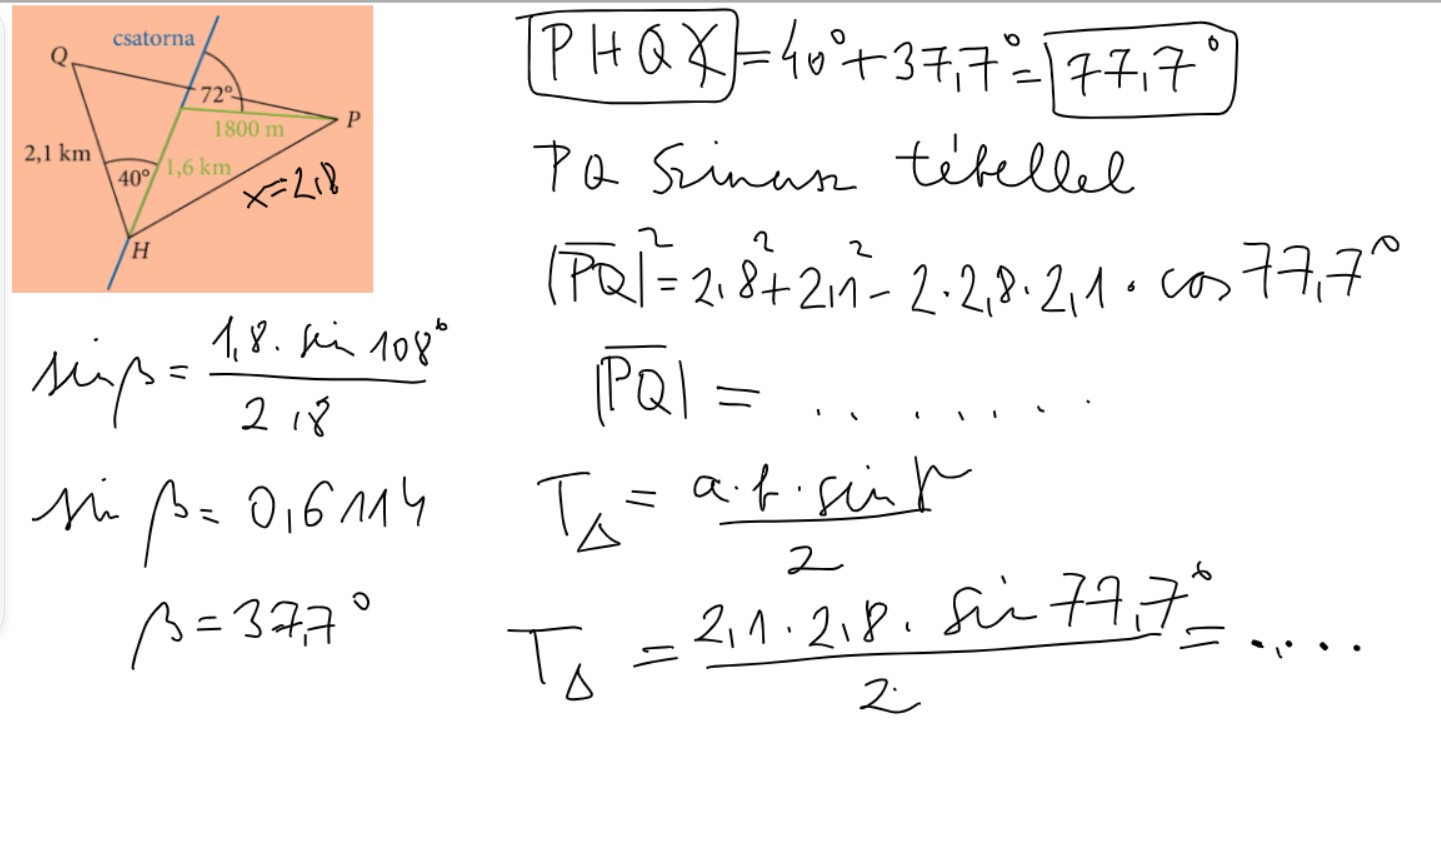 csatorna
Q
72°
P
1800 m
2,1 km
1,6 km
40°
x=2,8
H
sin β = 1,8 · sin 108° / 2,8
sin β = 0,6114
β = 37,7°
PHQ∢ = 40° + 37,7° = 77,7°
PQ Szinusz tétellel
|PQ|² = 2,8² + 2,1² - 2 · 2,8 · 2,1 · cos 77,7°
|PQ| = . . . . . . .
T△ = a · b · sin γ / 2
T△ = 2,1 · 2,8 · sin 77,7° / 2 = . . . .